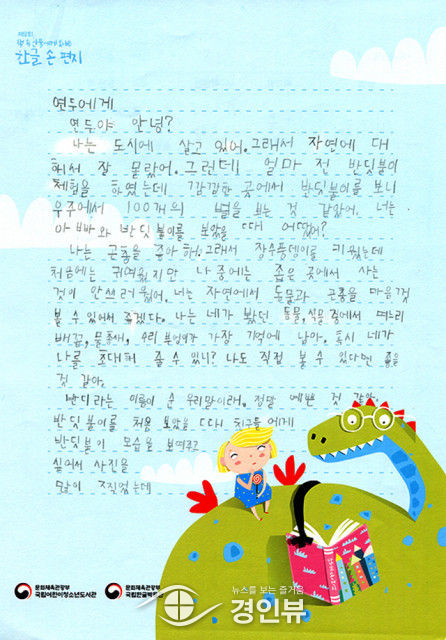 한글 손 편지
연두에게
연두야 안녕?
나는 도시에 살고 있어. 그래서 자연에 대
해서 잘 몰랐어. 그런데 얼마 전 반딧불이
체험을 하였는데 캄캄한 곳에서 반딧불이를 보니
우주에서 100개의 별을 보는 것 같았어. 너는
아빠와 반딧불이를 보았을 때 어땠어?
나는 곤충을 좋아해. 그래서 장수풍뎅이를 키웠는데
처음에는 귀여웠지만 나중에는 좁은 곳에서 사는
것이 안쓰러웠어. 너는 자연에서 동물과 곤충을 마음껏
볼 수 있어서 좋겠다. 나는 네가 봤던 동물, 식물 중에서 며느리
배꼽, 물총새, 수리부엉이가 가장 기억에 남아. 혹시 네가
나를 초대해 줄 수 있니? 나도 직접 볼 수 있다면 좋을
것 같아.
반디라는 이름이 순 우리말이래. 정말 예쁜 것 같아.
반딧불이를 처음 보았을 때 친구들에게
반딧불이 모습을 보여주고
싶어서 사진을
많이 찍었는데
문화체육관광부 국립어린이청소년도서관
문화체육관광부 국립한글박물관
뉴스를 보는 즐거움
경인뷰